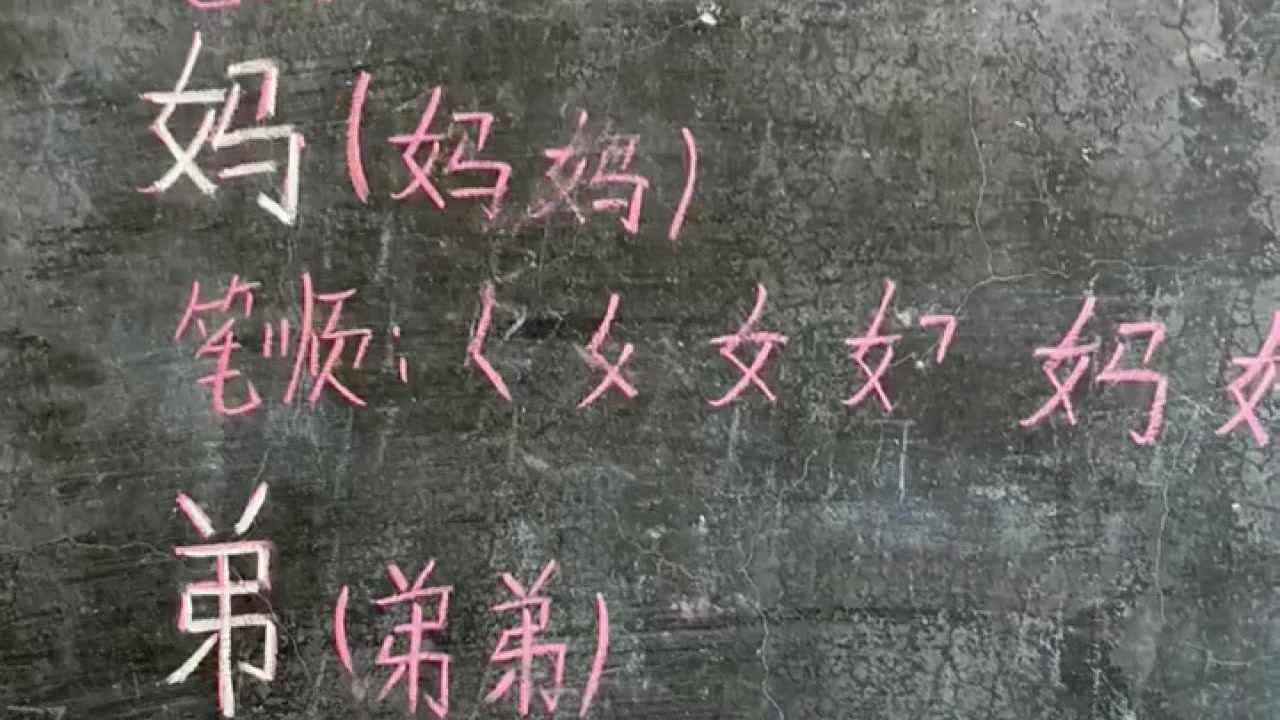 妈(妈妈)
笔顺:く 女 女 女㇆ 妈
弟(弟弟)